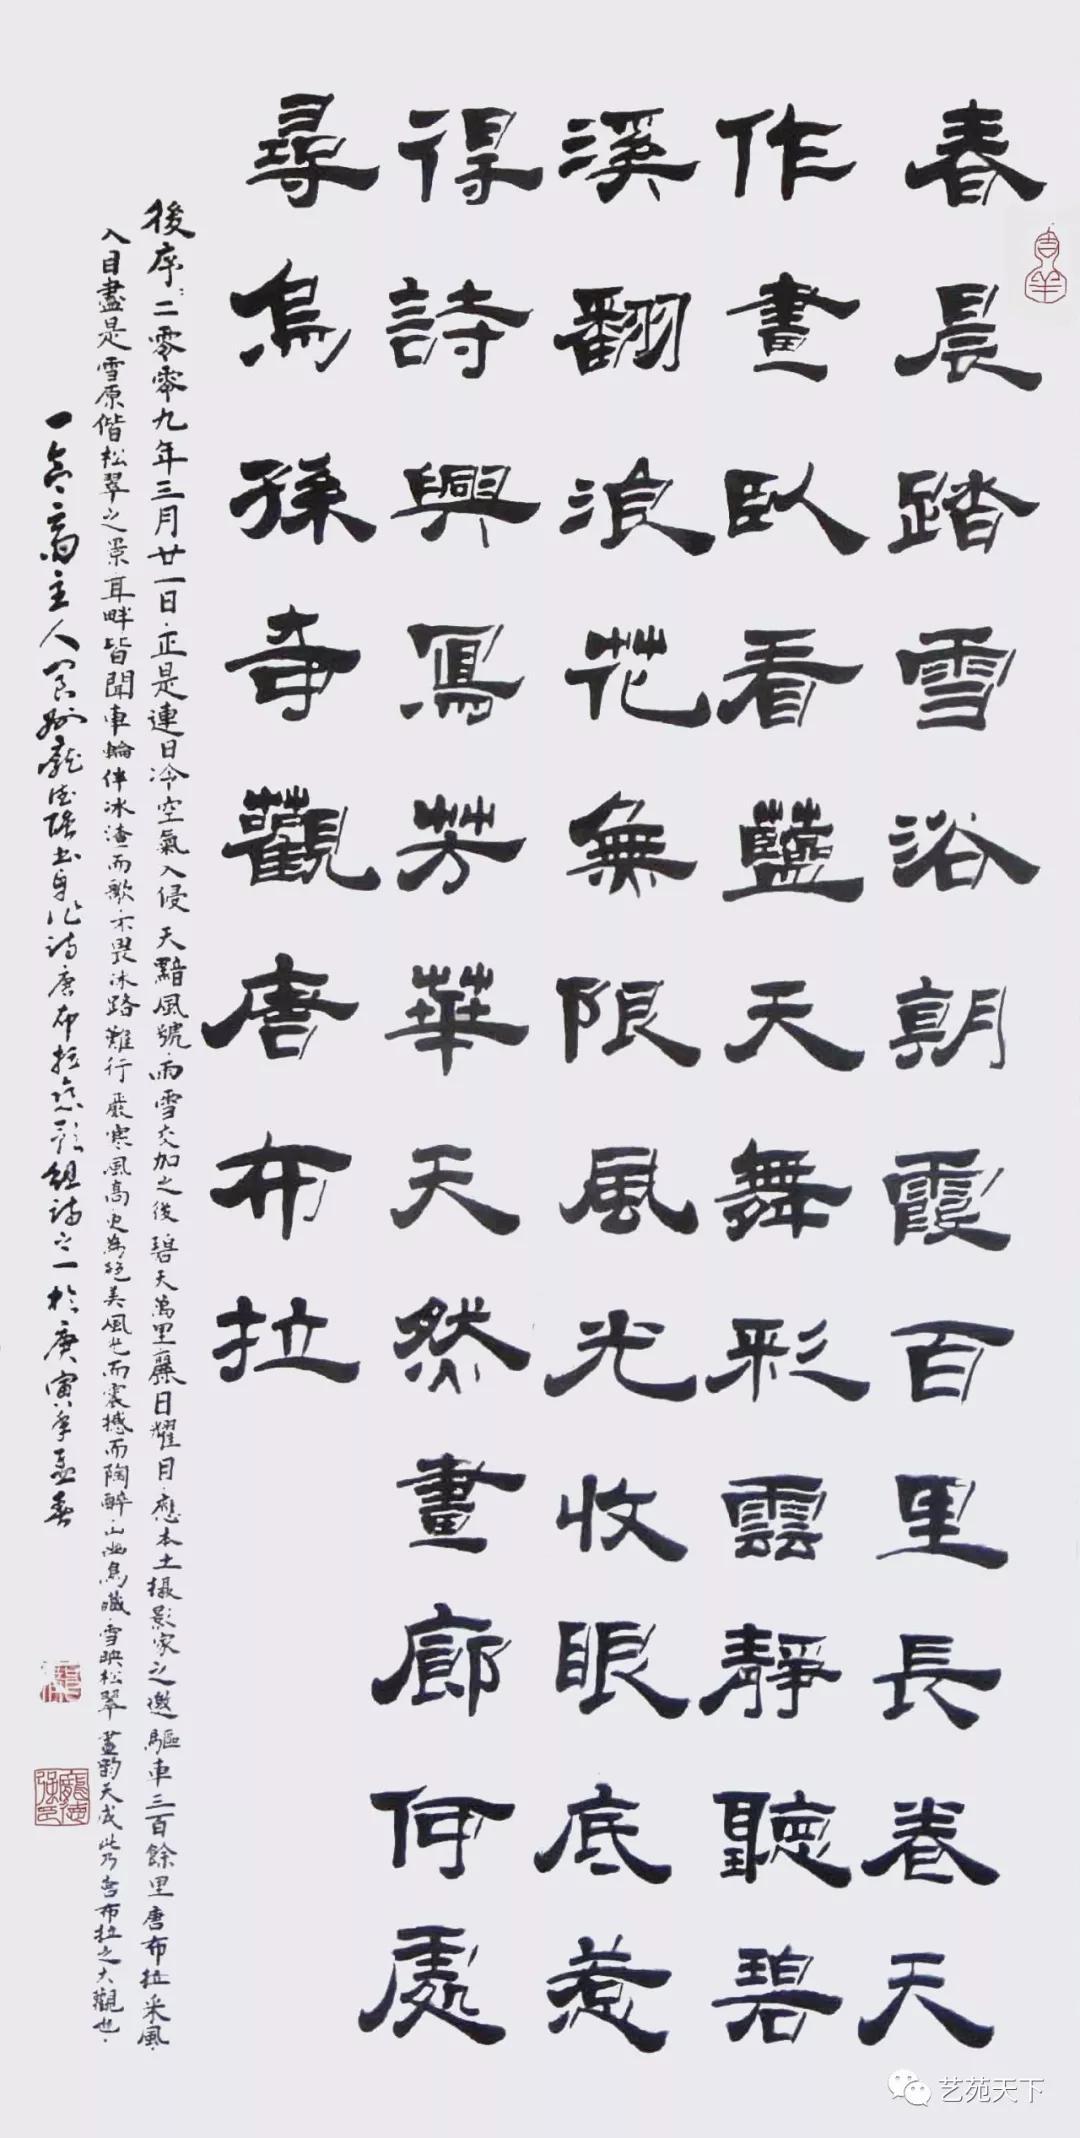 春晨踏雪浴朝霞百里長卷天
作畫臥看藍天舞彩雲靜聽碧
溪翻浪花無限風光收眼底惹
得詩興寫芳華天然畫廊何處
尋烏孫奇觀唐布拉
後序：二零零九年三月廿一日·正是連日冷空氣入侵天黯風號·雨雪交加之後碧天萬里麗日耀目·應本土摄影家之邀驅車三百餘里唐布拉采風·
入目盡是雪原偕松翠之景·耳畔皆聞車輪伴冰渣而歌·不畏冰路難行嚴寒風高更為絕美風光而震撼而陶醉·山幽鳥瞰·雪映松翠畫韵天成此乃唐布拉之大觀也·
一 齋主人 龐德強書自作詩唐布拉 組詩之一於庚寅年孟春
吉羊
龐德強印
艺苑天下